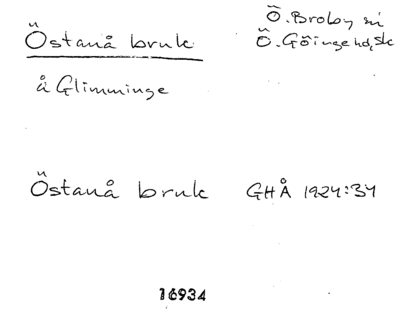 Östanå bruk
Ö. Broby sn
Ö. Göinge hd, Sk
å Glimminge
Östanå bruk GHÅ 1924:34
16934